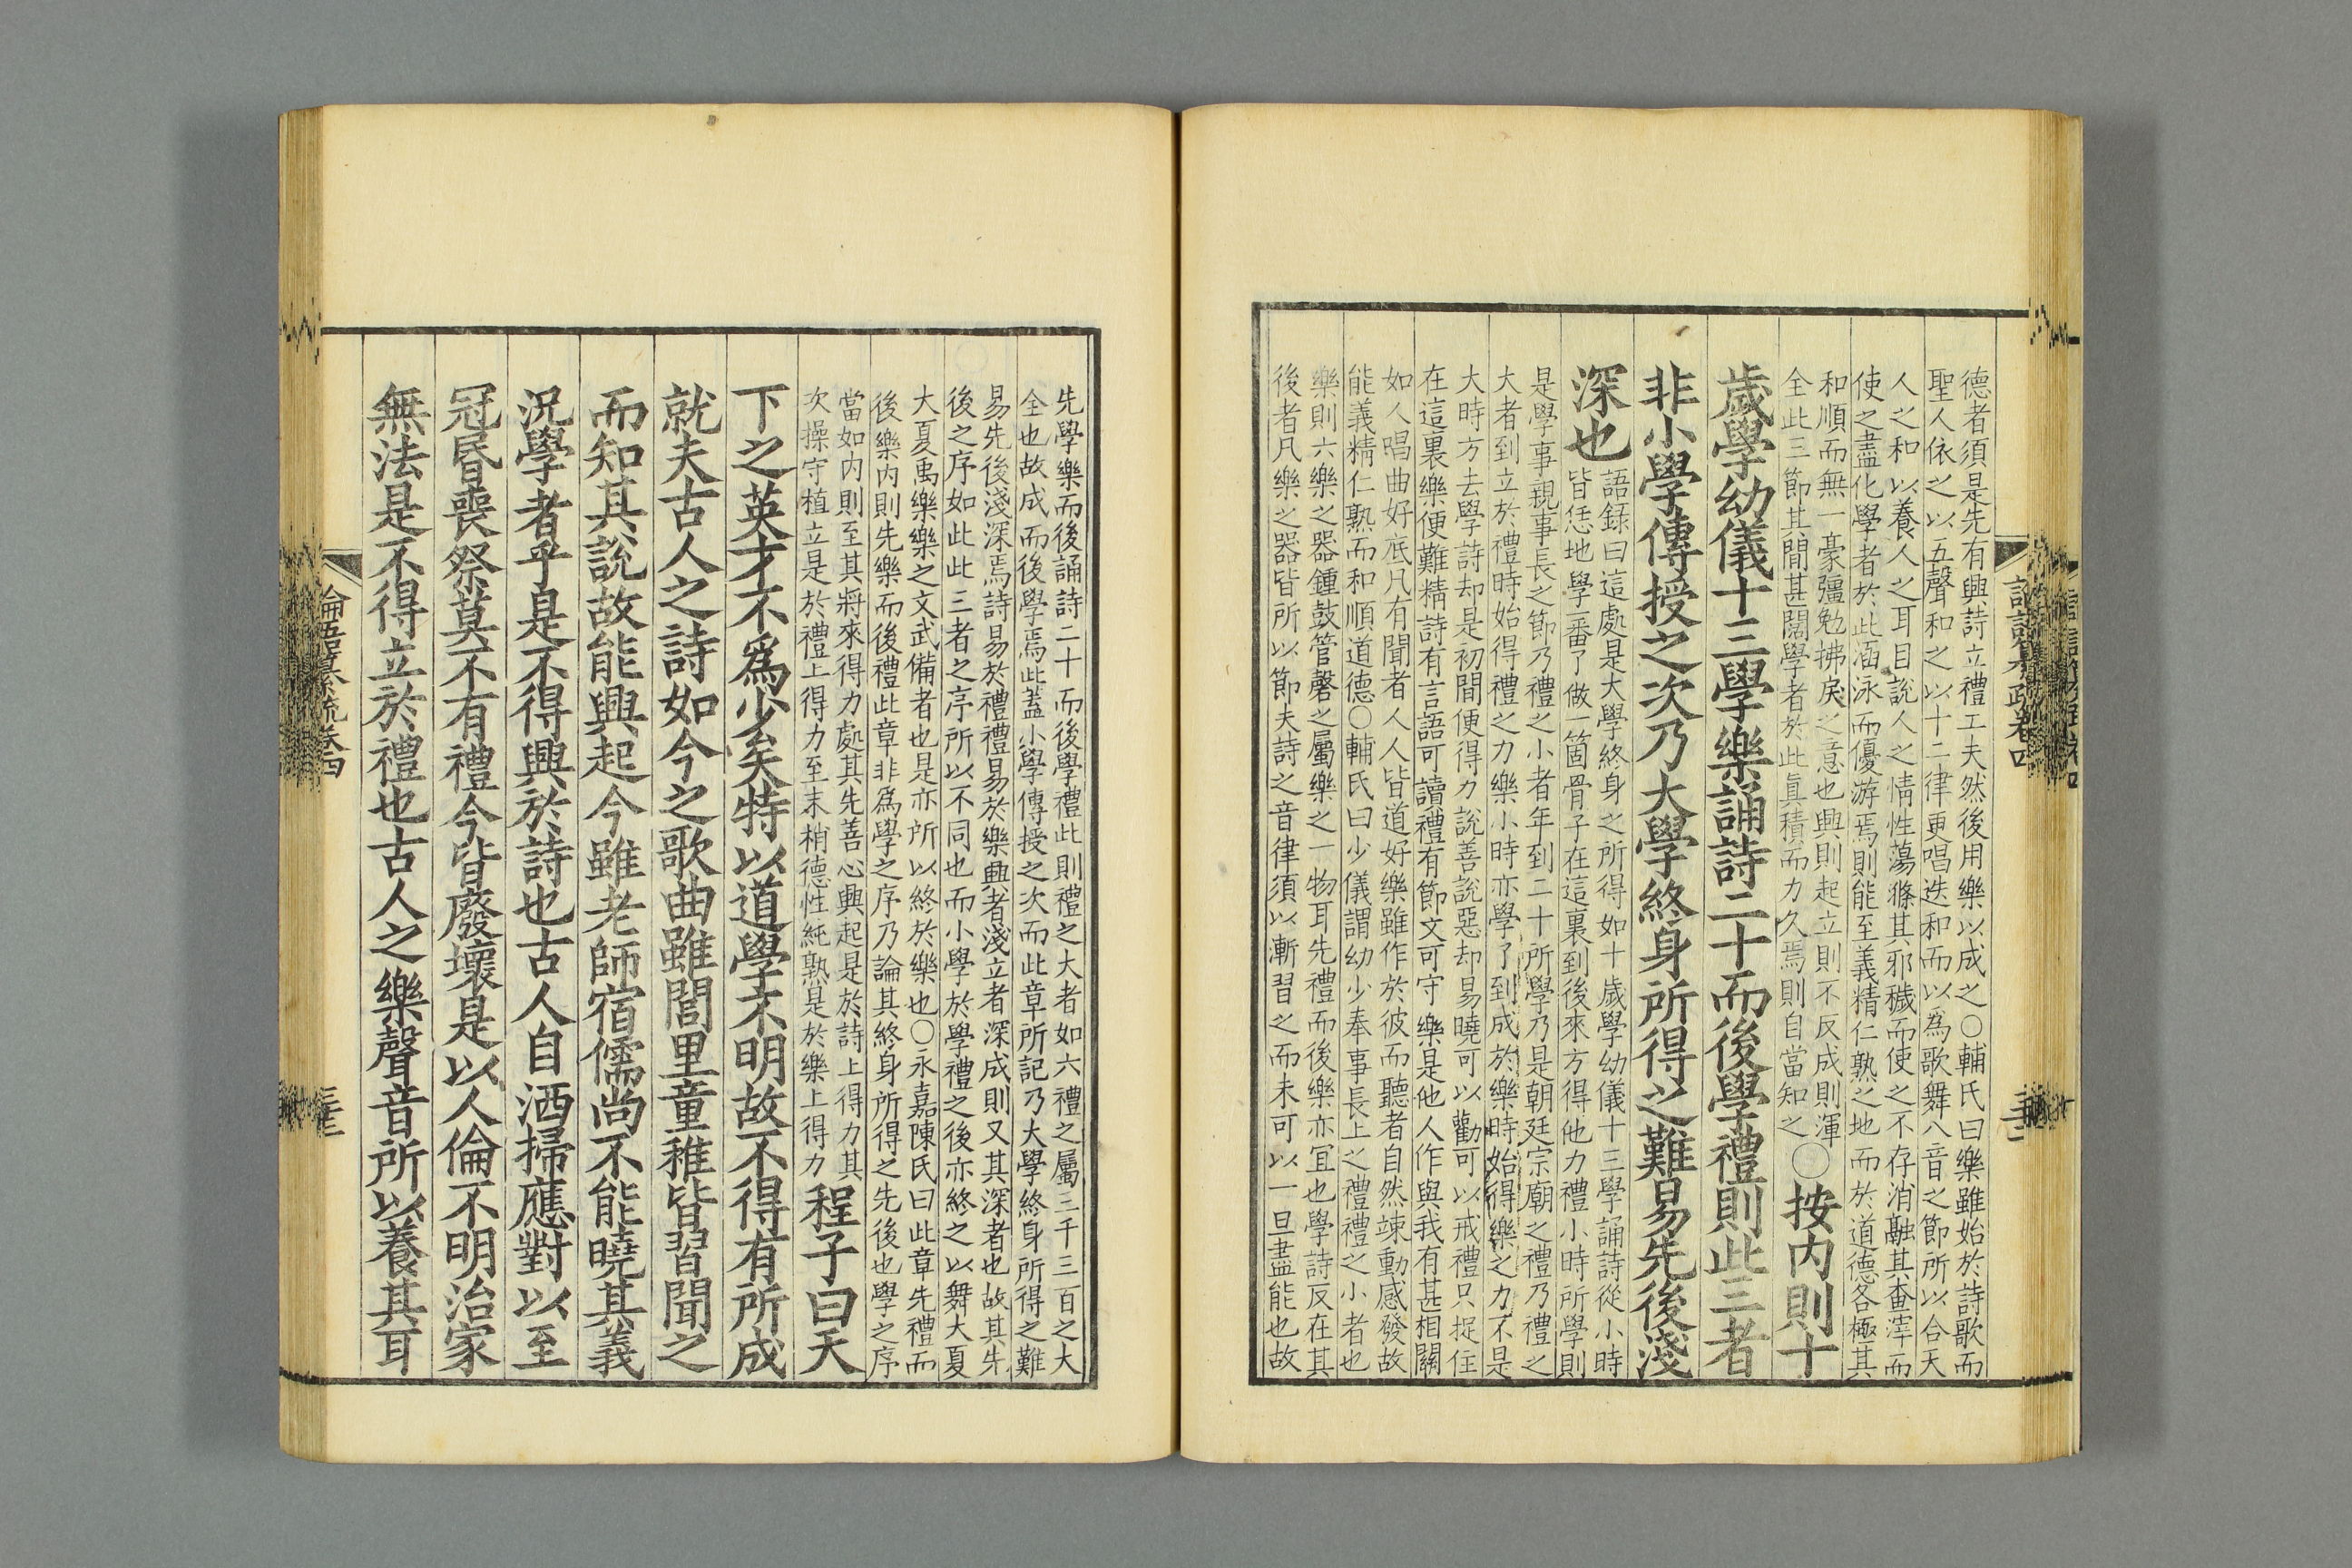 德者須是先有興詩立禮工夫然後用樂以成之○輔氏曰樂雖始於詩歌而
聖人依之以五聲和之以十二律更唱迭和而以為歌舞八音之節所以合天
人之和以養人之耳目說人之情性蕩滌其邪穢而使之不存消融其查滓而
使之盡化學者於此涵泳而優游焉則能至義精仁熟之地而於道德各極其
和順而無一豪彊勉拂戾之意也興則起立則不反成則渾
全此三節其間甚闊學者於此真積而力久焉則自當知之
○按内則十
歲學幼儀十三學樂誦詩二十而後學禮則此三者
非小學傳授之次乃大學終身所得之難易先後淺
深也
語録曰這處是大學終身之所得如十歲學幼儀十三學誦詩從小時
皆恁地學一番了做一箇骨子在這裏到後來方得他力禮小時所學則
是學事親事長之節乃禮之小者年到二十所學乃是朝廷宗廟之禮乃禮之
大者到立於禮時始得禮之力樂小時亦學了到成於樂時始得樂之力不是
大時方去學詩却是初間便得力說善說惡却易曉可以勸可以戒禮只捉住
在這裏樂便難精詩有言語可讀禮有節文可守樂是他人作與我有甚相關
如人唱曲好底凡有聞者人人皆道好樂雖作於彼而聽者自然竦動感發故
能義精仁熟而和順道德○輔氏曰少儀謂幼少奉事長上之禮禮之小者也
樂則六樂之器鍾鼓管磬之屬樂之一物耳先禮而後樂亦宜也學詩反在其
後者凡樂之器皆所以節夫詩之音律須以漸習之而未可以一旦盡能也故
先學樂而後誦詩二十而後學禮此則禮之大者如六禮之屬三千三百之大
全也故成而後學焉此蓋小學傳授之次而此章所記乃大學終身所得之難
易先後淺深焉詩易於禮禮易於樂興者淺立者深成則又其深者也故其先
後之序如此此三者之序所以不同也而小學於學禮之後亦終之以舞大夏
大夏禹樂樂之文武備者也是亦所以終於樂也○永嘉陳氏曰此章先禮而
後樂内則先樂而後禮此章非為學之序乃論其終身所得之先後也學之序
當如内則至其將來得力處其先善心興起是於詩上得力其
次操守植立是於禮上得力至末梢德性純熟是於樂上得力
程子曰天
下之英才不爲少矣特以道學不明故不得有所成
就夫古人之詩如今之歌曲雖閭里童稚皆習聞之
而知其說故能興起今雖老師宿儒尚不能曉其義
況學者乎是不得興於詩也古人自洒掃應對以至
冠昏喪祭莫不有禮今皆廢壞是以人倫不明治家
無法是不得立於禮也古人之樂聲音所以養其耳
論語纂疏卷四